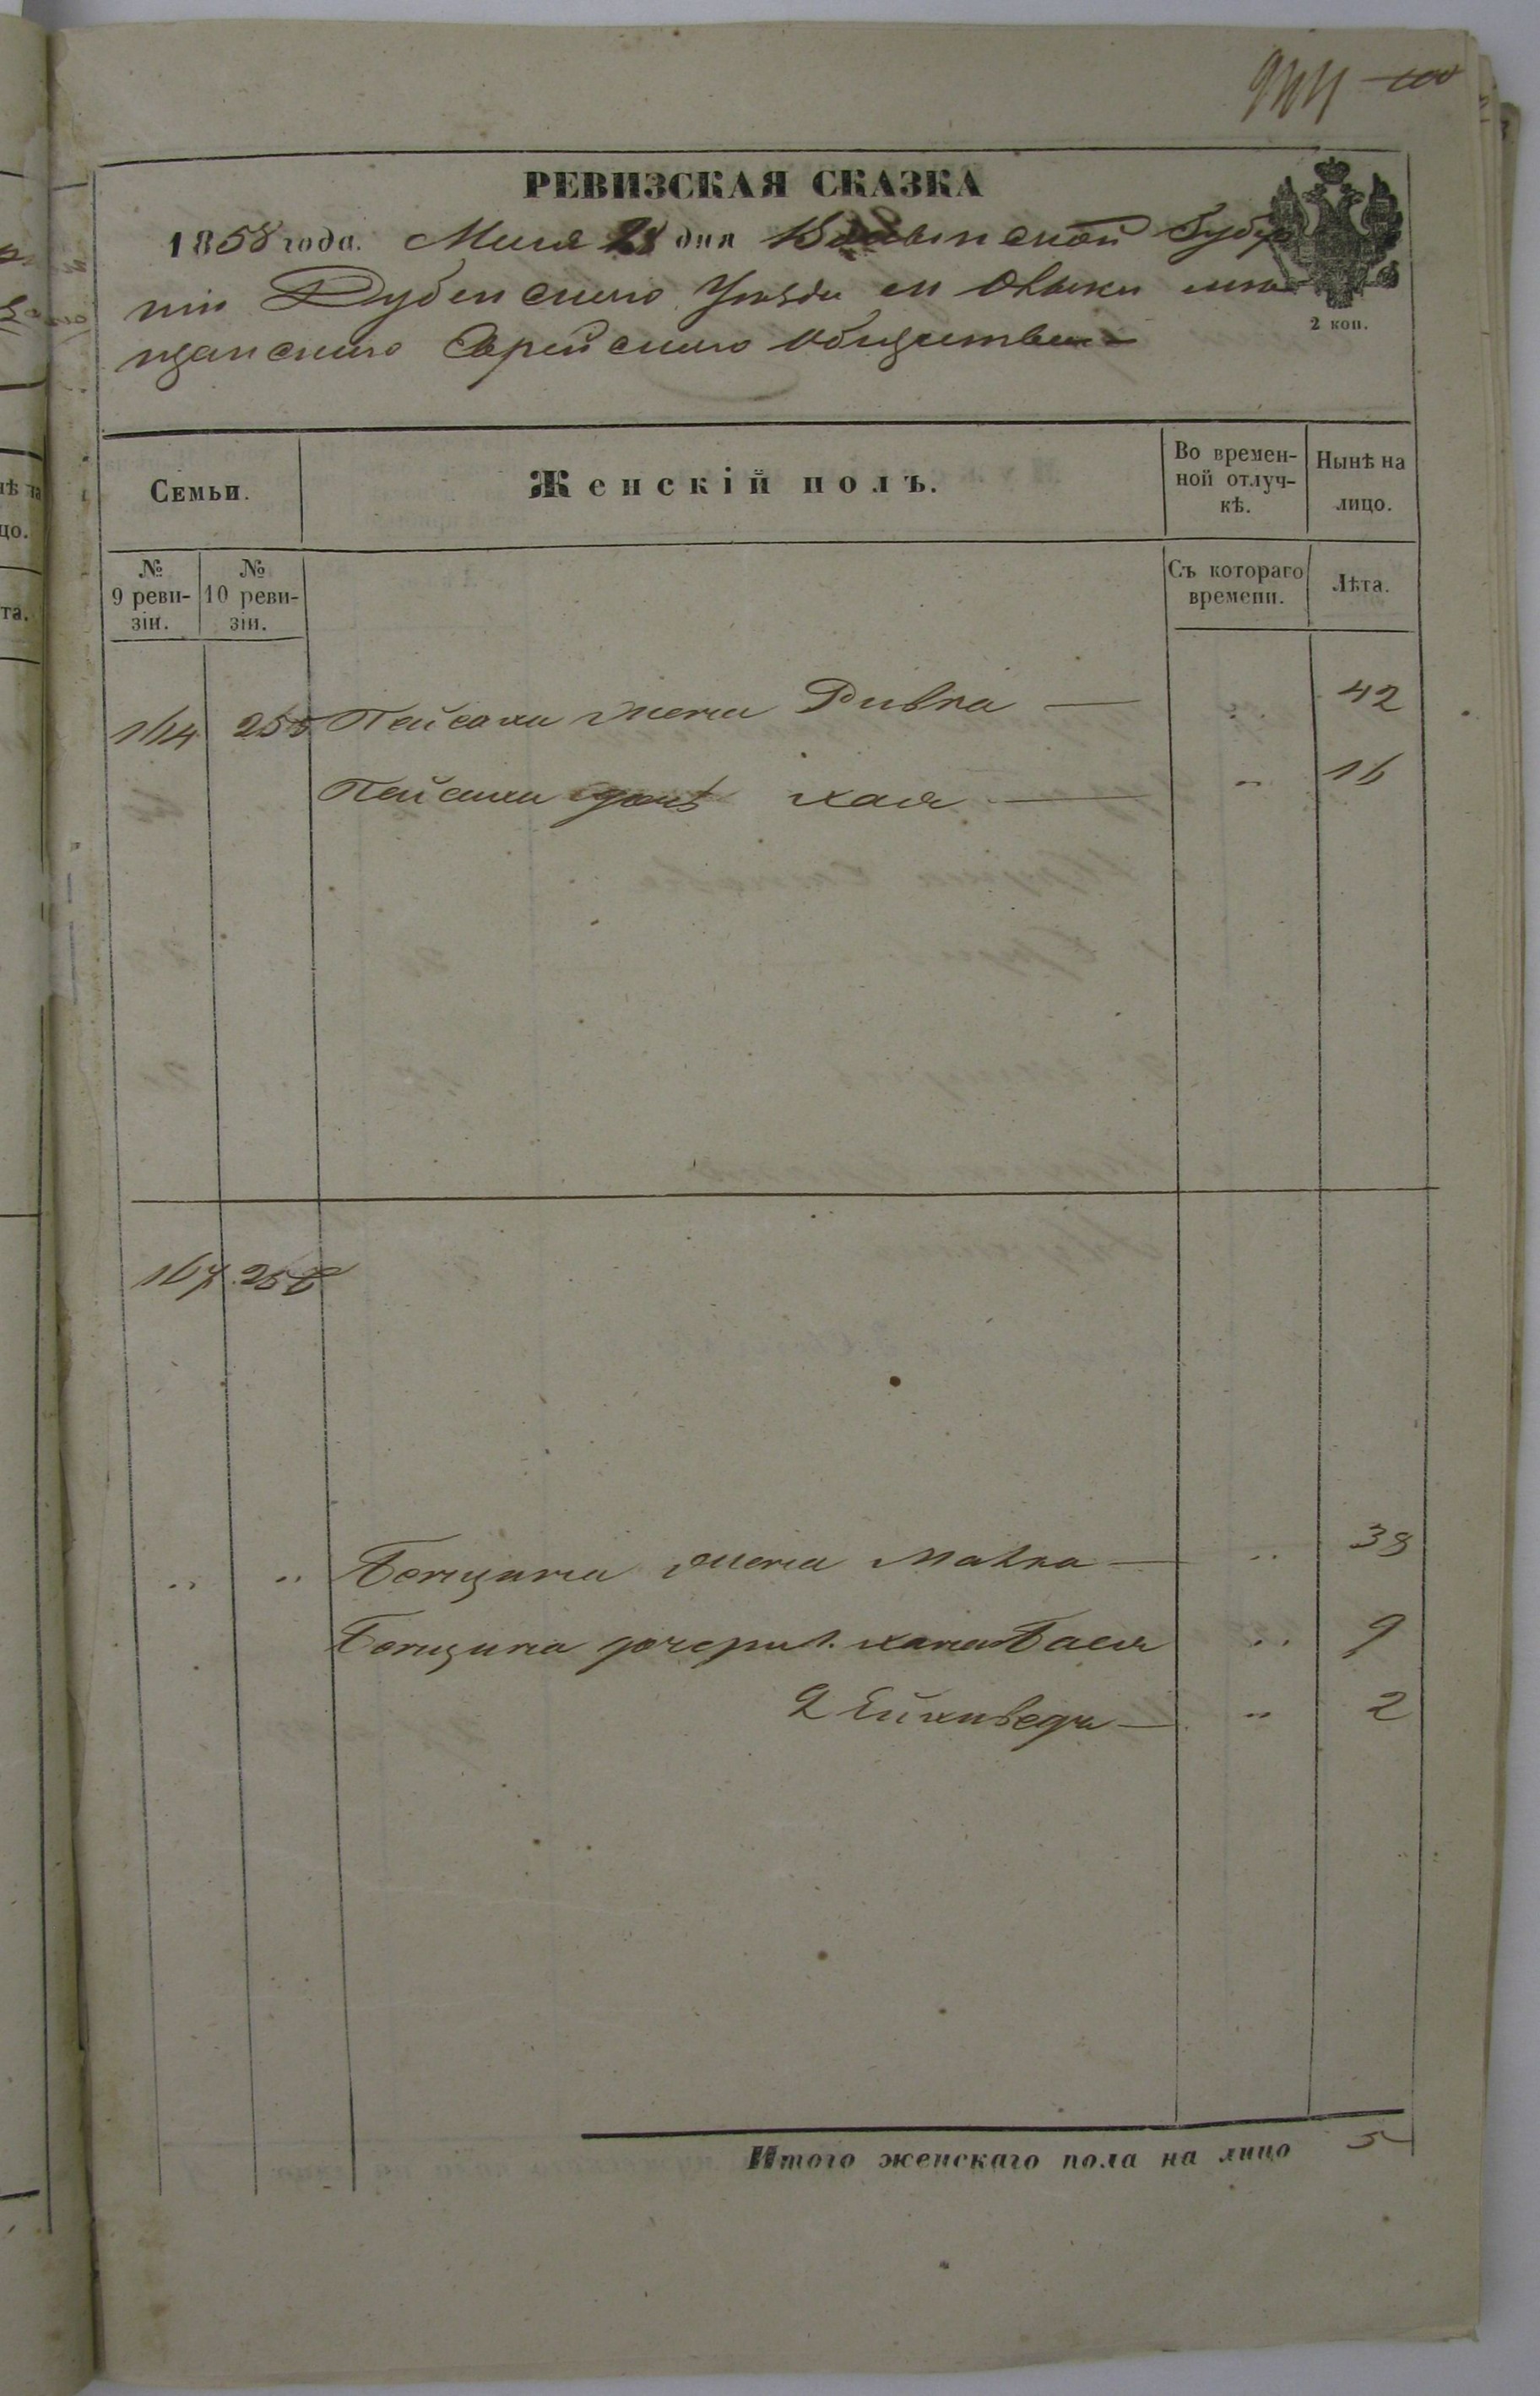 РЕВИЗСКАЯ СКАЗКА
1858 года. Мая 28 дня Волынской Губер
ніи Дубенскаго Уѣзда м Олыки мѣ
щанскаго Еврейскаго общества
2 коп.
Семьи. Женскій полъ. Во времен-ной отлуч-кѣ. Нынѣ на лицо.
№ 9 реви-зіи. № 10 реви-зіи. Съ котораго времени. Лѣта.
164 255 Пейсаха жена Ривка — 42
Пейсаха дочь хая — " 16
167 256
" " Бенциона жена Малка — " 38
Бенциона дочери 1. хана Бася " 9
2 Ейхиведа — " 2
Итого женскаго пола на лицо 5